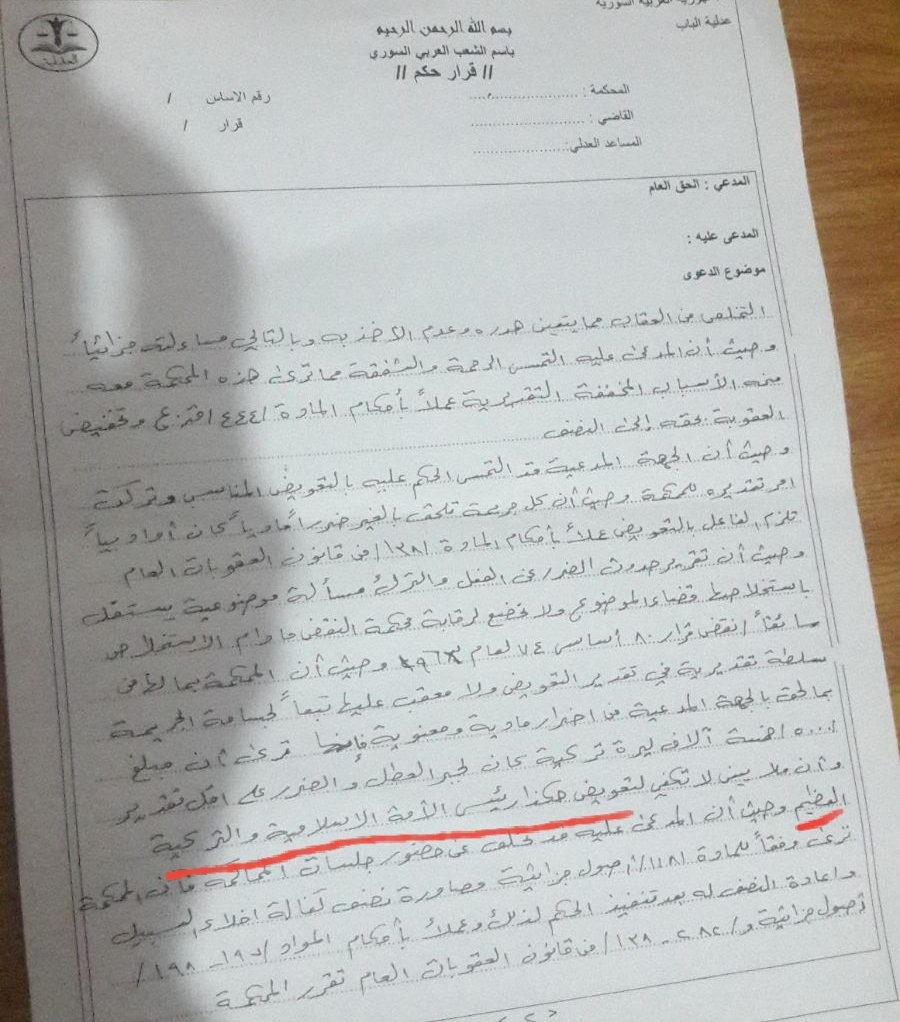 العربية السورية
عدلية الباب
العدلية
بسم الله الرحمن الرحيم
باسم الشعب العربي السوري
// قرار حكم //
المحكمة :
رقم الاساس /
القاضي :
قرار /
المساعد العدلي:
المدعي : الحق العام
المدعى عليه :
موضوع الدعوى
التخلص من العقاب مما يتعين هدره وعدم الاخذ به وبالتالي مساءلته جزائياً
وحيث أن المدعى عليه التمس الرحمة والشفقة مما ترى هذه المحكمة معه
منحه الأسباب المخففة التقديرية عملاً بأحكام المادة /٢٤٤/ وتخفيض
العقوبة بحقه إلى النصف
وحيث أن الجهة المدعية قد التمس الحكم عليه بالتعويض المناسب وتركت
امر تقديره للمحكمة وحيث أن كل جريمة تلحق بالغير ضرراً مادياً كان أو ادبياً
تلزم الفاعل بالتعويض عملاً بأحكام المادة /١٣٨/ من قانون العقوبات العام
وحيث أن تقدير حدوث الضرر عن الفعل والترك مسألة موضوعية يستقل
باستخلاصها قضاء الموضوع ولا تخضع لرقابة محكمة النقض ما دام الاستخلاص
سائغاً / نقض قرار ٨٠ أساس ٧٤ لعام وحيث أن المحكمة بما لها من
سلطة تقديرية في تقدير التعويض ولا معقب عليها تبعاً لجسامة الجريمة
بما لحق بالجهة المدعية من اضرار مادية ومعنوية فإنها ترى أن مبلغ
/٥٠٠٠/ خمسة آلاف ليرة تركية كان لجبر العطل والضرر على اقل تقدير
وأن ملايين لا تكفي لتعويض هكذا رئيس الأمة الاسلامية والتركية
العظيم وحيث أن المدعى عليه قد تخلف عن حضور جلسات المحاكمة فإن المحكمة
ترى وفقاً للمادة /١١٨/ أصول جزائية مصادرة نصف كفالة اخلاء السبيل
واعادة النصف له بعد تنفيذ الحكم لذلك وعملاً بأحكام المواد - ١٩٨/
أصول جزائية و/ ٢٨٢ - ١٣٨ / من قانون العقوبات العام تقرر المحكمة